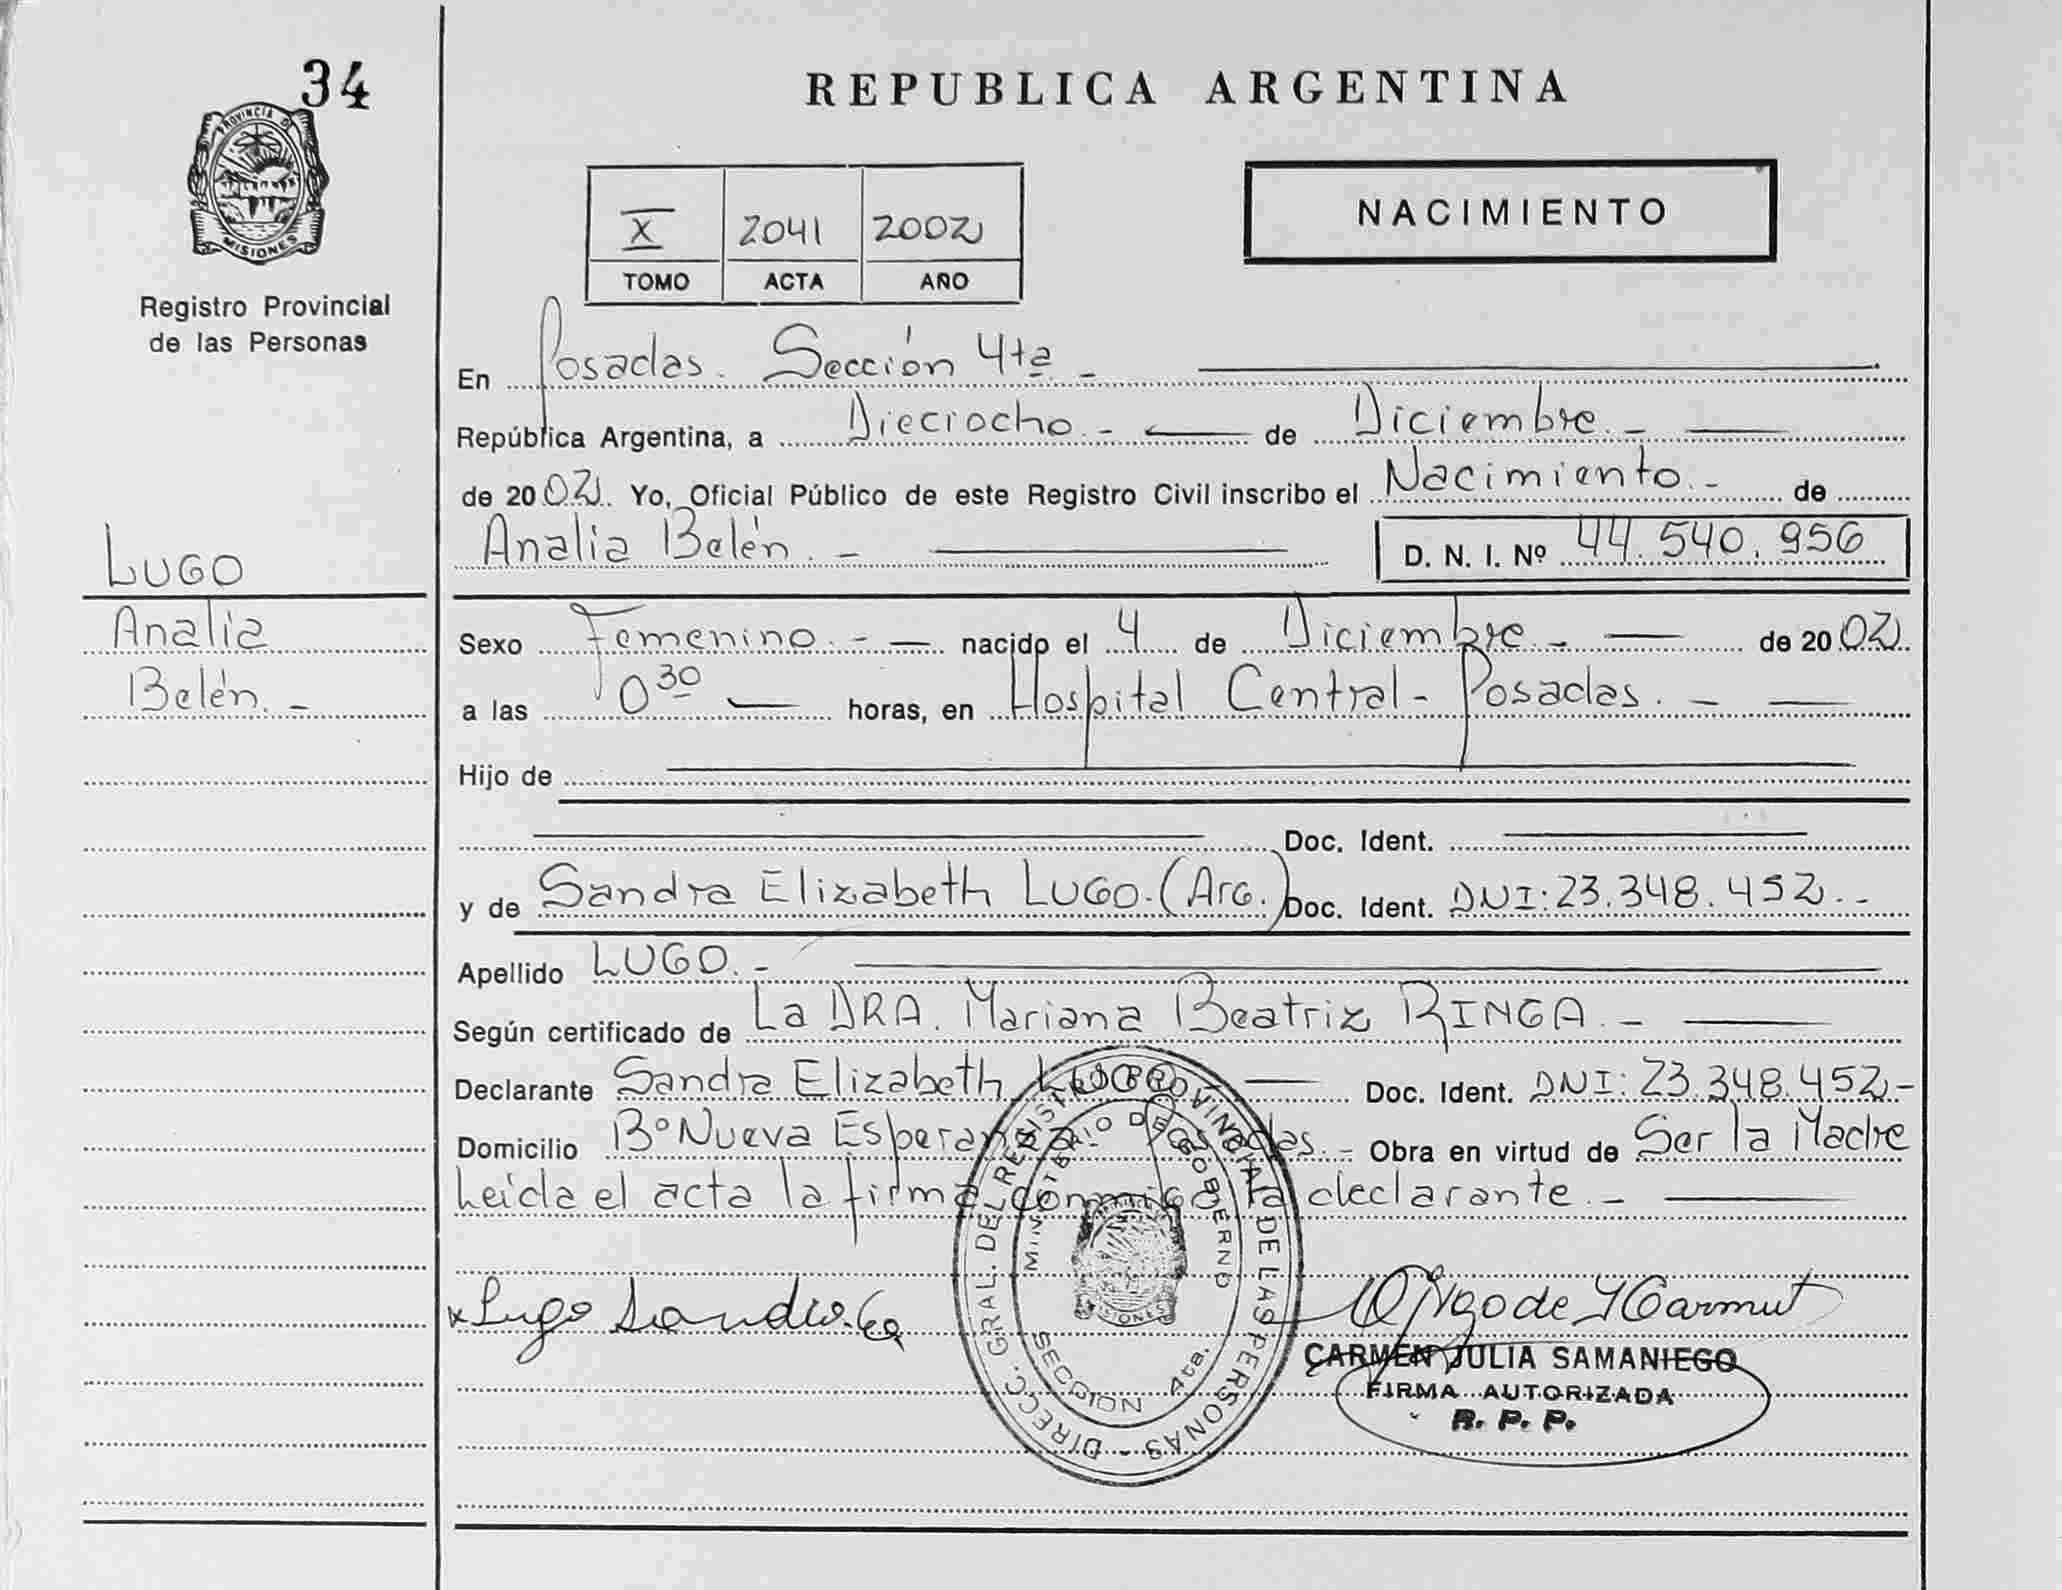 34
PROVINCIA DE
MISIONES
Registro Provincial
de las Personas
LUGO
Analia
Belén. -
REPUBLICA ARGENTINA
X 2041 2002
TOMO ACTA AÑO
NACIMIENTO
En Posadas. Sección 4ta. -
República Argentina, a Dieciocho. - de Diciembre. -
de 2002. Yo, Oficial Público de este Registro Civil inscribo el Nacimiento. - de
Analia Belén. - D. N. I. Nº 44.540.956
Sexo Femenino. - nacido el 4 de Diciembre. - de 2002.
a las 0 30 horas, en Hospital Central - Posadas. -
Hijo de
Doc. Ident.
y de Sandra Elizabeth LUGO. (Arg.) Doc. Ident. DNI: 23.348.452. -
Apellido LUGO. -
Según certificado de La DRA. Mariana Beatriz RINGA. -
Declarante Sandra Elizabeth LUGO Doc. Ident. DNI: 23.348.452 -
Domicilio Bº Nueva Esperanza Posadas. - Obra en virtud de Ser la Madre
Leída el acta la firma conmigo la declarante. -
DIRECC. GRAL. DEL REGISTRO PROVINCIAL DE LAS PERSONAS -
MINISTERIO DE GOBIERNO
MISIONES
SECCION 4ta.
x Lugo Sandra
CARMEN JULIA SAMANIEGO
FIRMA AUTORIZADA
R. P. P.